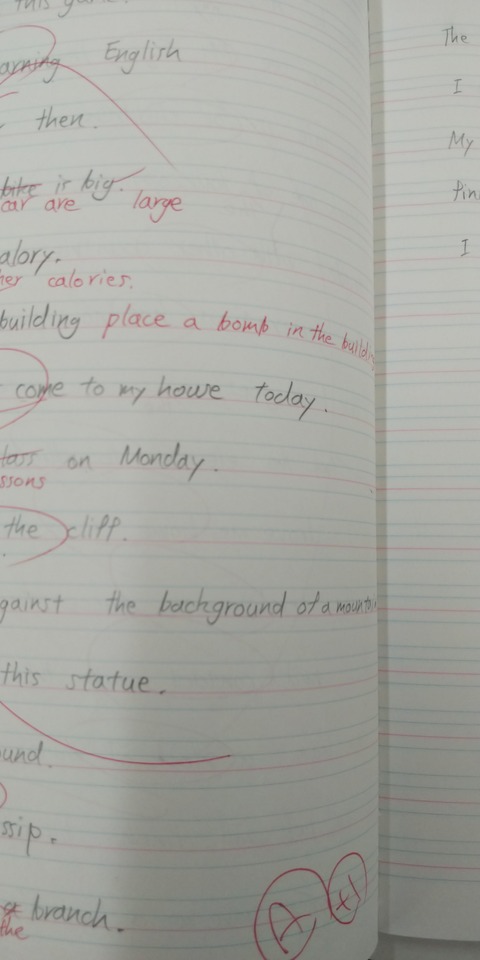 this
English
then.
bike is big.
car are large
alory.
calories.
building place a bomb in the
come to my house today.
lass on Monday.
ssons
the cliff.
gainst the background of a mountain
this statue.
ound.
ssip.
branch.
the
A
The
I
My
I